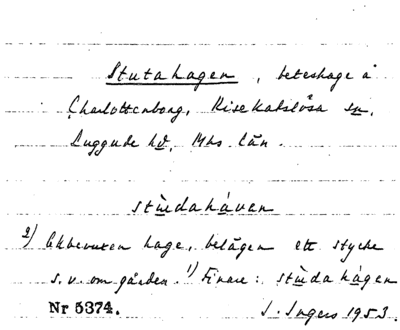 Stutahagen, beteshage å
Charlottenborg, Risekatslösa sn,
Luggude hd, Mhs. län.
stùdahåven
2) Ekbevuxen hage, belägen ett stycke
s.v. om gården. 1) Finare: stùda hágen
Nr 5374. I. Ingers 1953.